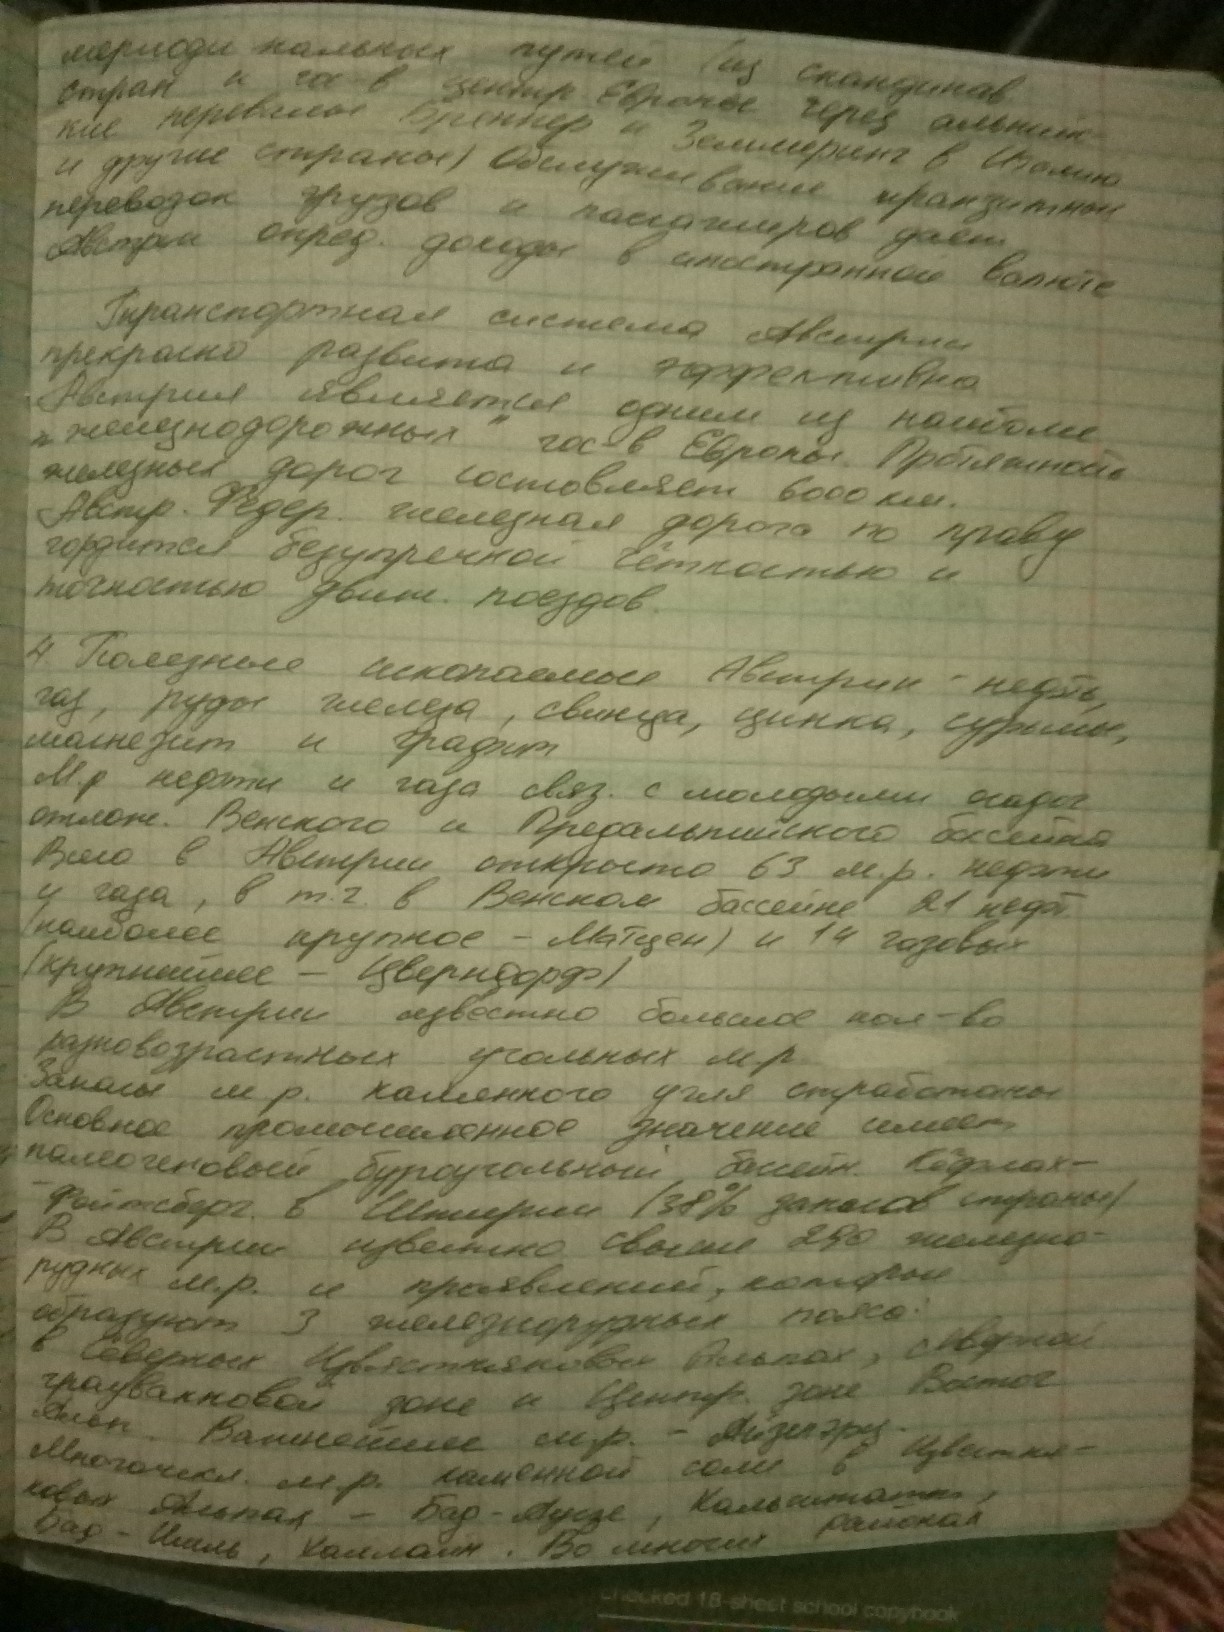 меридиональных путей (из скандинав
стран и гос-в центр Европы через альпийс-
кие перевалы Бреннер и Земмеринг в Италию
и другие страны) Обслуживание транзитных
перевозок грузов и пассажиров даёт
Австрии опред. доходы в иностранной валюте
Транспортная система Австрии
прекрасно развита и эффективна
Австрия является одним из наиболее
"железнодорожных" гос-в Европы. Протяжность
железных дорог составляет 6000 км.
Австр. Федер. железная дорога по праву
гордится безупречной чёткостью и
точностью движ. поездов.
4. Полезные ископаемые Австрии - нефть,
газ, руды железа, свинца, цинка, сурьмы,
магнезит и графит
М.р нефти и газа связ. с молодыми осадоч
отлож. Венского и Предальпийского бассейна
Всего в Австрии открыто 63 м.р. нефти
и газа, в т.ч. в Венском бассейне 21 нефт
(наиболее крупное - Матцен) и 14 газовых
(крупнейшее - Цверндорф)
В Австрии известно большое кол-во
разновозрастных угольных м.р
Запасы м.р. каменного угля отработаны
Основное промышленное значение имеет
палеогеновый буроугольный бассейн. Кёфлах-
-Фойтсберг. в Штирии (38% запасов страны)
В Австрии известно свыше 290 железно-
рудных м.р. и проявлений, которые
образуют 3 железнорудных пояса:
в Северных Известняковых Альпах, северной
граувакковой зоне и Центр. зоне Восточ
Альп. Важнейшее м.р. - Айзенэрц.
Многочисл. м.р. каменной соли в Известня-
ковых Альпах - Бад-Аусзе, Хальштатт,
Бад-Ишль, Халлайн. Во многих районах
checked 18-sheet school copybook